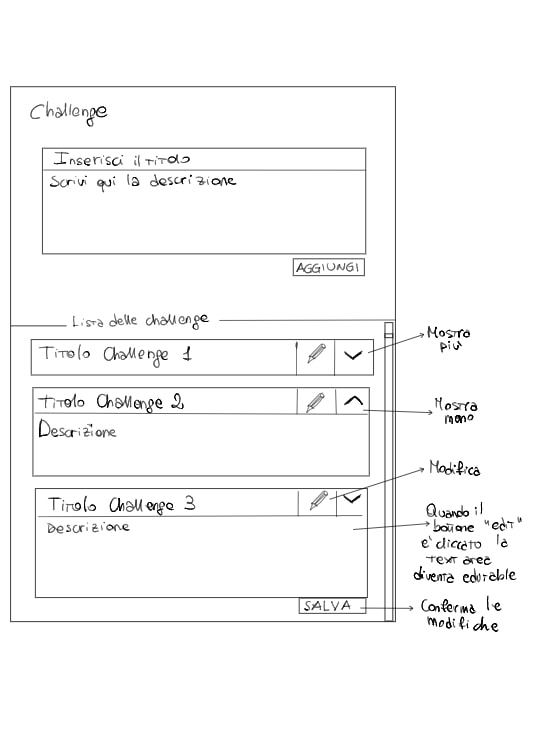 Challenge
Inserisci il titolo
Scrivi qui la descrizione
AGGIUNGI
Lista delle challenge
Titolo Challenge 1
Mostra
più
Titolo Challenge 2
Descrizione
Mostra
meno
Modifica
Titolo Challenge 3
Descrizione
Quando il
bottone "edit"
e' cliccato la
text area
diventa editable
SALVA
Conferma le
modifiche